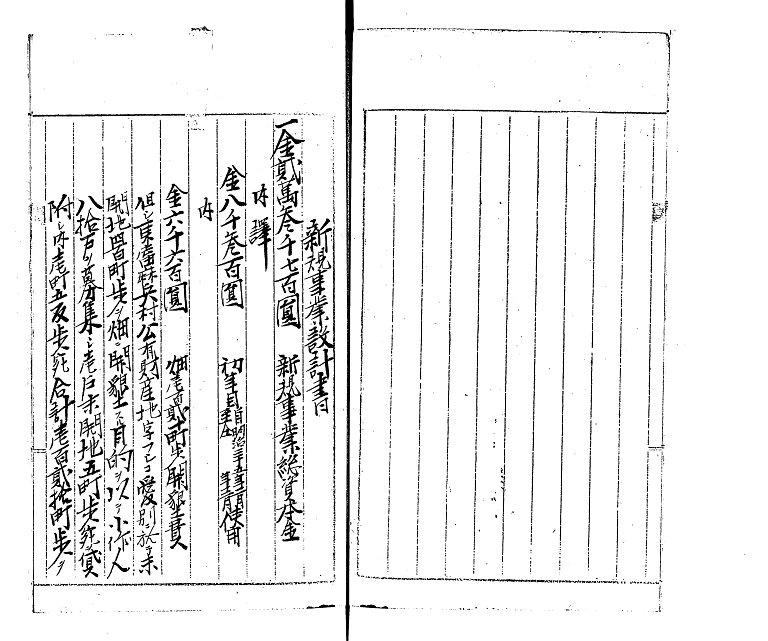 新規事業設計書
一金貳萬叁千七百圓 新規事業総資本金
内譯
金八千叁百圓 初年目自明治三十五年 月至 年 月使用
内
金六千六百圓 畑壱百貳十町歩開墾費
但シ東 村公有財産地字フシコ愛別ニ於テ未
開地四百町歩ヲ畑ニ開墾スル目的ヲ以テ小作人
八拾戸ヲ募集シ壱戸未開地五町歩宛貸
附シ内壱町五反歩宛合計壱百貳拾町歩ヲ